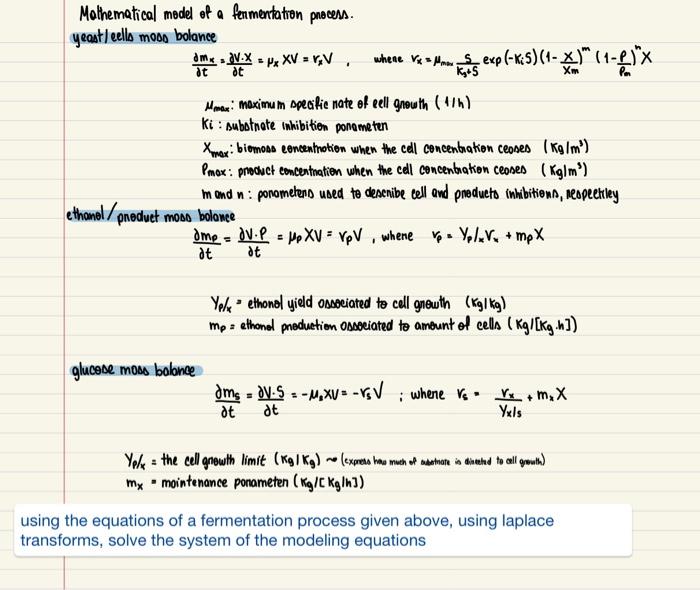 Mathematical model of a fermentation process.
yeast/cells mass balance
∂mx/∂t = ∂V·X/∂t = μx XV = rxV , where rx = μmax S/(Ks+S) exp(-KiS)(1-X/Xm)^m (1-P/Pm)^n X
μmax: maximum specific rate of cell growth (1/h)
Ki : substrate inhibition parameter
Xmax: biomass concentration when the cell concentration ceases (Kg/m³)
Pmax: product concentration when the cell concentration ceases (Kg/m³)
m and n : parameters used to describe cell and products inhibitions, respectley
ethanol/product mass balance
∂mp/∂t = ∂V·P/∂t = μp XV = rpV , where rp = Yp/x rx + mpX
Yp/x = ethanol yield associated to cell growth (kg/kg)
mp = ethanol production associated to amount of cells (Kg/[Kg.h])
glucose mass balance
∂ms/∂t = ∂V·S/∂t = -μs XV = -rsV ; where rs = rx/Yx/s + mxX
Yp/x = the cell growth limit (Kg/Kg) ~ (express how much of substrate is directed to cell growth)
mx = maintenance parameter (Kg/[Kg/h])
using the equations of a fermentation process given above, using laplace
transforms, solve the system of the modeling equations